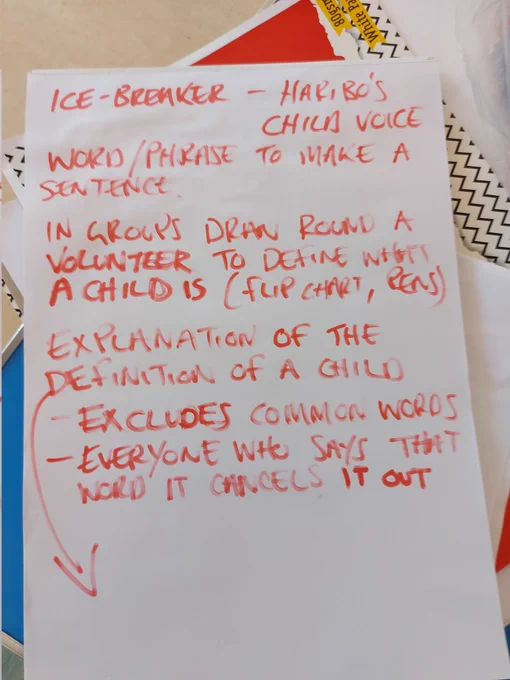 BOGSTA
White Pa
ICE-BREAKER - HARIBO'S
CHILD VOICE
WORD/PHRASE TO MAKE A
SENTENCE.
IN GROUPS DRAW ROUND A
VOLUNTEER TO DEFINE WHAT
A CHILD IS (FLIP CHART, PENS)
EXPLANATION OF THE
DEFINITION OF A CHILD
- EXCLUDES COMMON WORDS
- EVERYONE WHO SAYS THAT
WORD IT CANCELS IT OUT